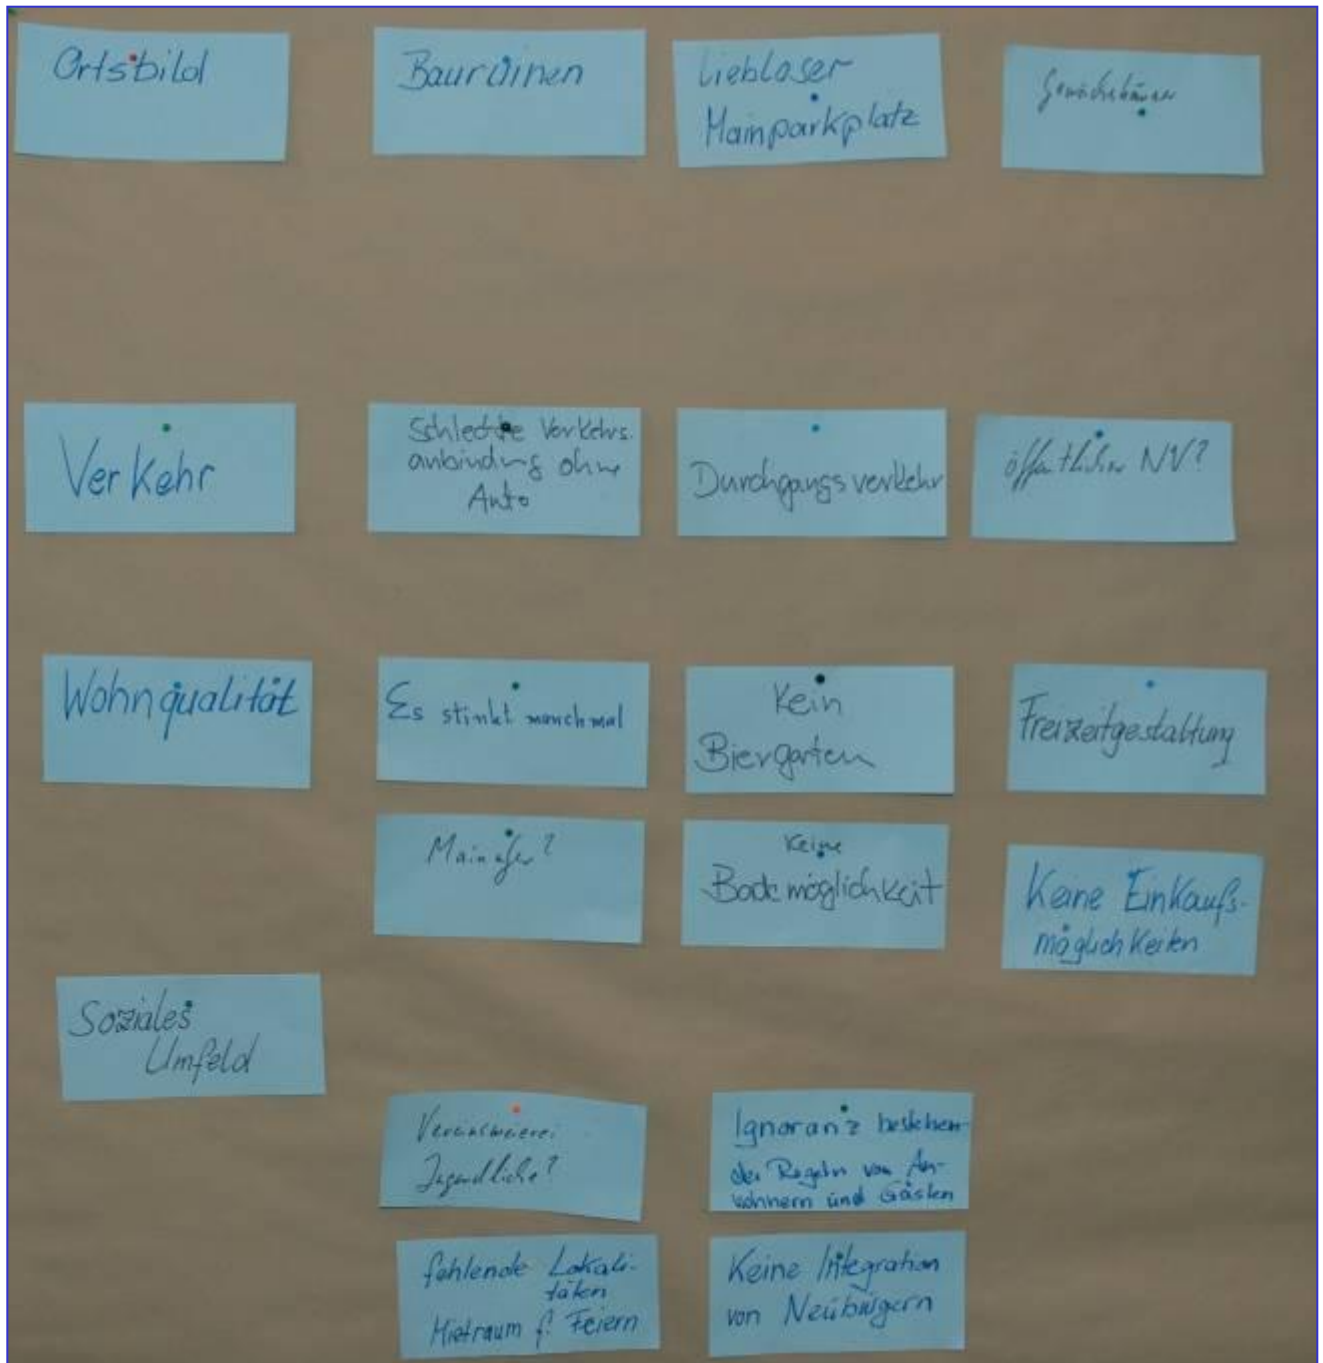 Ortsbild
Bauruinen
Liebloser
Mainparkplatz
Gewächshäuser
Verkehr
Schlechte Verkehrs.
anbindung ohne
Auto
Durchgangsverkehr
öffentlicher NV?
Wohnqualität
Es stinkt manchmal
Kein
Biergarten
Freizeitgestaltung
Mainufer?
Keine
Bademöglichkeit
Keine Einkaufs-
möglichkeiten
Soziales
Umfeld
Vereinsmeierei
Jugendliche?
Ignoranz bestehen-
der Regeln von An-
wohnern und Gästen
fehlende Lokali-
täten
Mietraum f. Feiern
Keine Integration
von Neubürgern